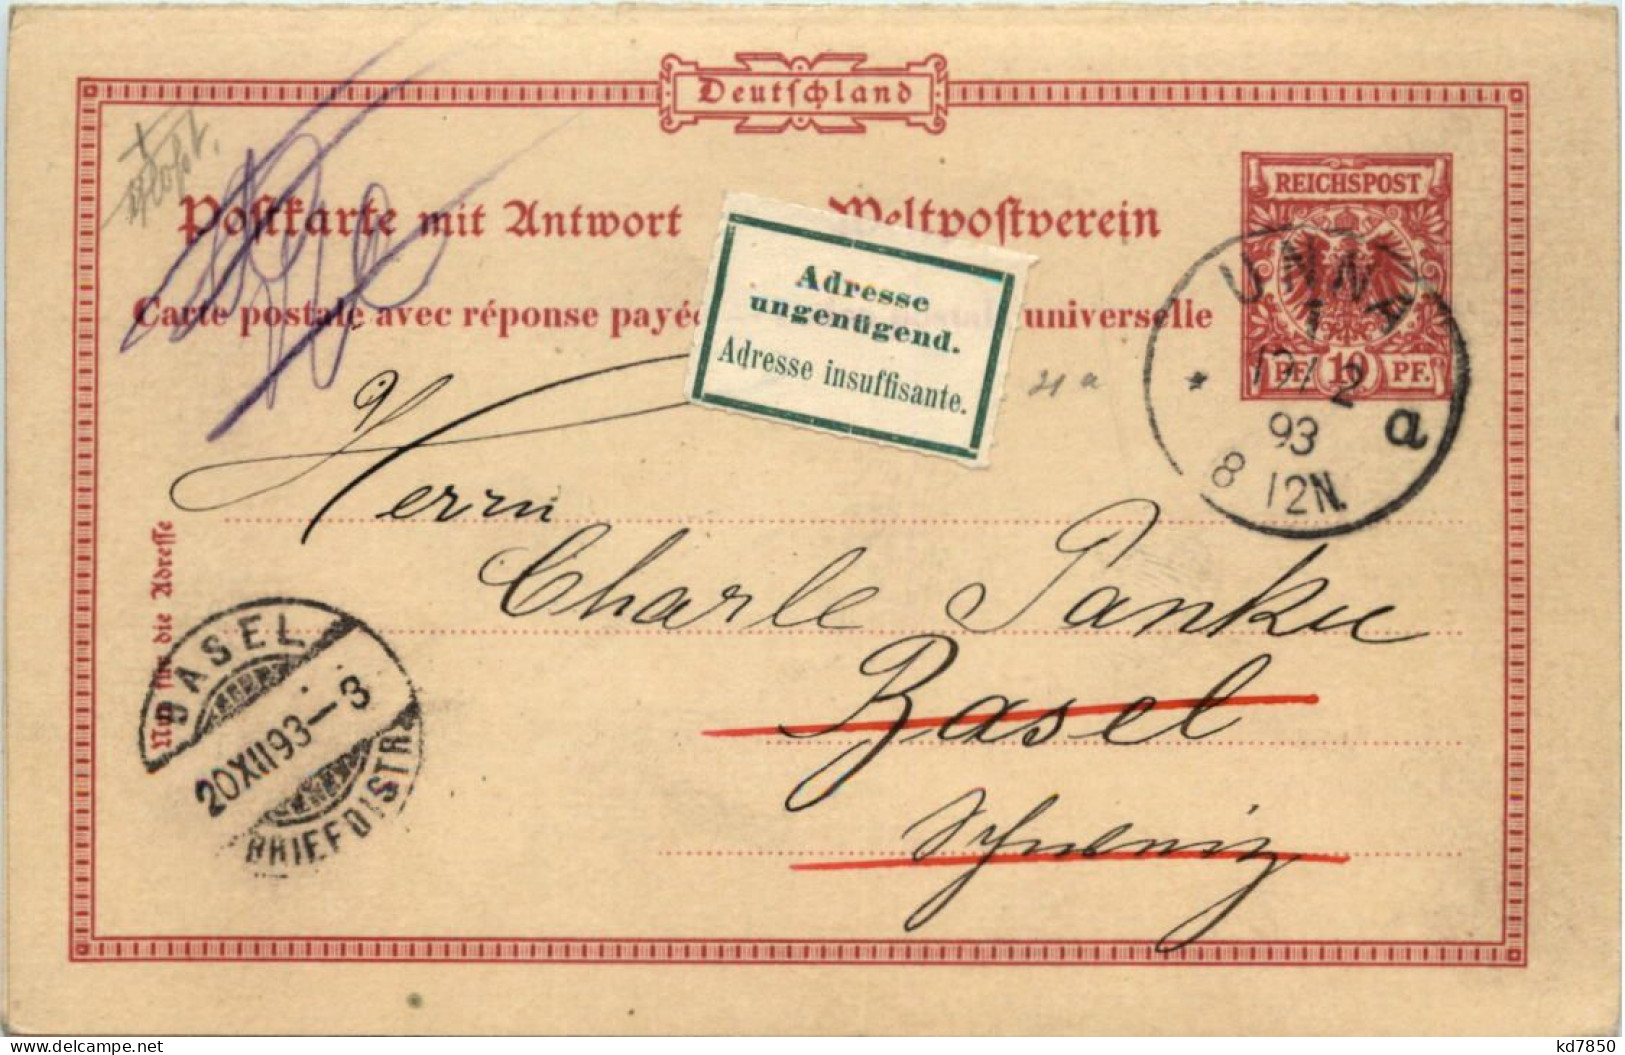 Deutſchland
Poſtkarte mit Antwort Weltpoſtverein
Carte postale avec réponse payée universelle
REICHSPOST
PF. 10 PF.
UNNA
93
a
8 12N.
Adresse
ungenügend.
Adresse insuffisante.
21 a
Herrn
Charle Panku
Basel
Schweiz
Nur für die Adreſſe
BASEL
20XII93-3
BRIEFDISTR
www.delcampe.net
kd7850